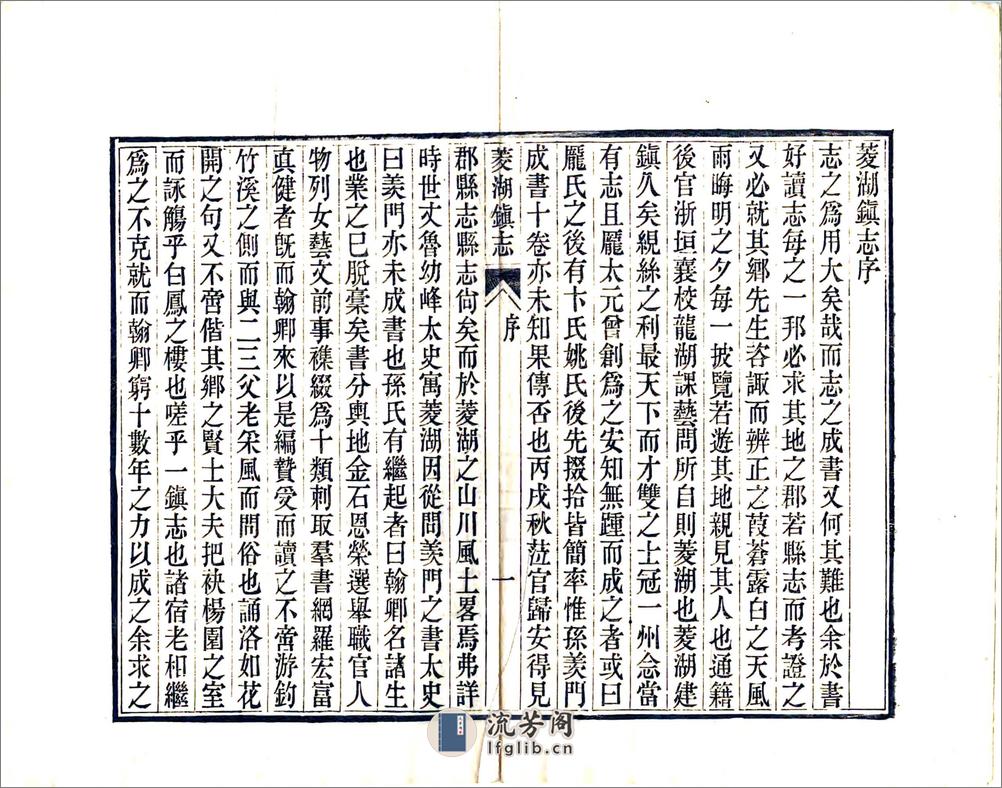 菱湖鎮志序
志之爲用大矣哉而志之成書又何其難也余於書
好讀志每之一邦必求其地之郡若縣志而考證之
又必就其鄉先生咨諏而辨正之葭蒼露白之天風
雨晦明之夕每一披覽若遊其地親見其人也通籍
後官浙垣襄校龍湖課藝問所自則菱湖也菱湖建
鎮久矣覜絲之利最天下而才雙之士冠一州念當
有志且龎太元曾創爲之安知無踵而成之者或曰
龎氏之後有卞氏姚氏後先掇拾皆簡率惟孫羡門
成書十卷亦未知果傳否也丙戌秋莅官歸安得見
菱湖鎮志
序
一
郡縣志縣志尙矣而於菱湖之山川風土畧焉弗詳
時世丈魯幼峰太史寓菱湖因從問羡門之書太史
曰羡門亦未成書也孫氏有繼起者曰翰卿名諸生
也業之已脫稾矣書分輿地金石恩榮選舉職官人
物列女藝文前事襍綴爲十類刺取羣書網羅宏富
眞健者旣而翰卿來以是編贄受而讀之不啻游釣
竹溪之側而與二三父老采風而問俗也誦洛如花
開之句又不啻偕其鄉之賢士大夫把袂楊園之室
而詠觴乎白鳳之樓也嗟乎一鎮志也諸宿老相繼
爲之不克就而翰卿窮十數年之力以成之余求之
流芳阁
lfglib.cn